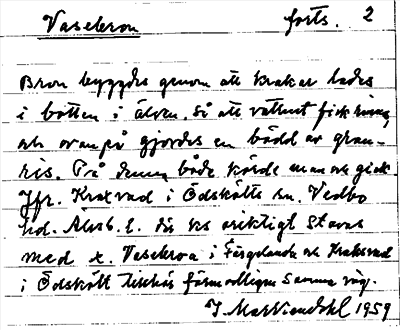 Vasebron forts. 2
Bron byggdes genom att krakar lades
i botten i älven, så att vattnet fick rinna,
och ovanpå gjordes en bädd av gran-
ris. På denna både körde man och gick.
Jfr. Kraxvad i Ödskölts sn. Vedbo
hd. Älvsb. l. där ks oriktigt stavas
med x. Vasebron i Färgelanda och Kraksvad
i Ödsköldt förmodligen samma väg.
J Markendahl 1959